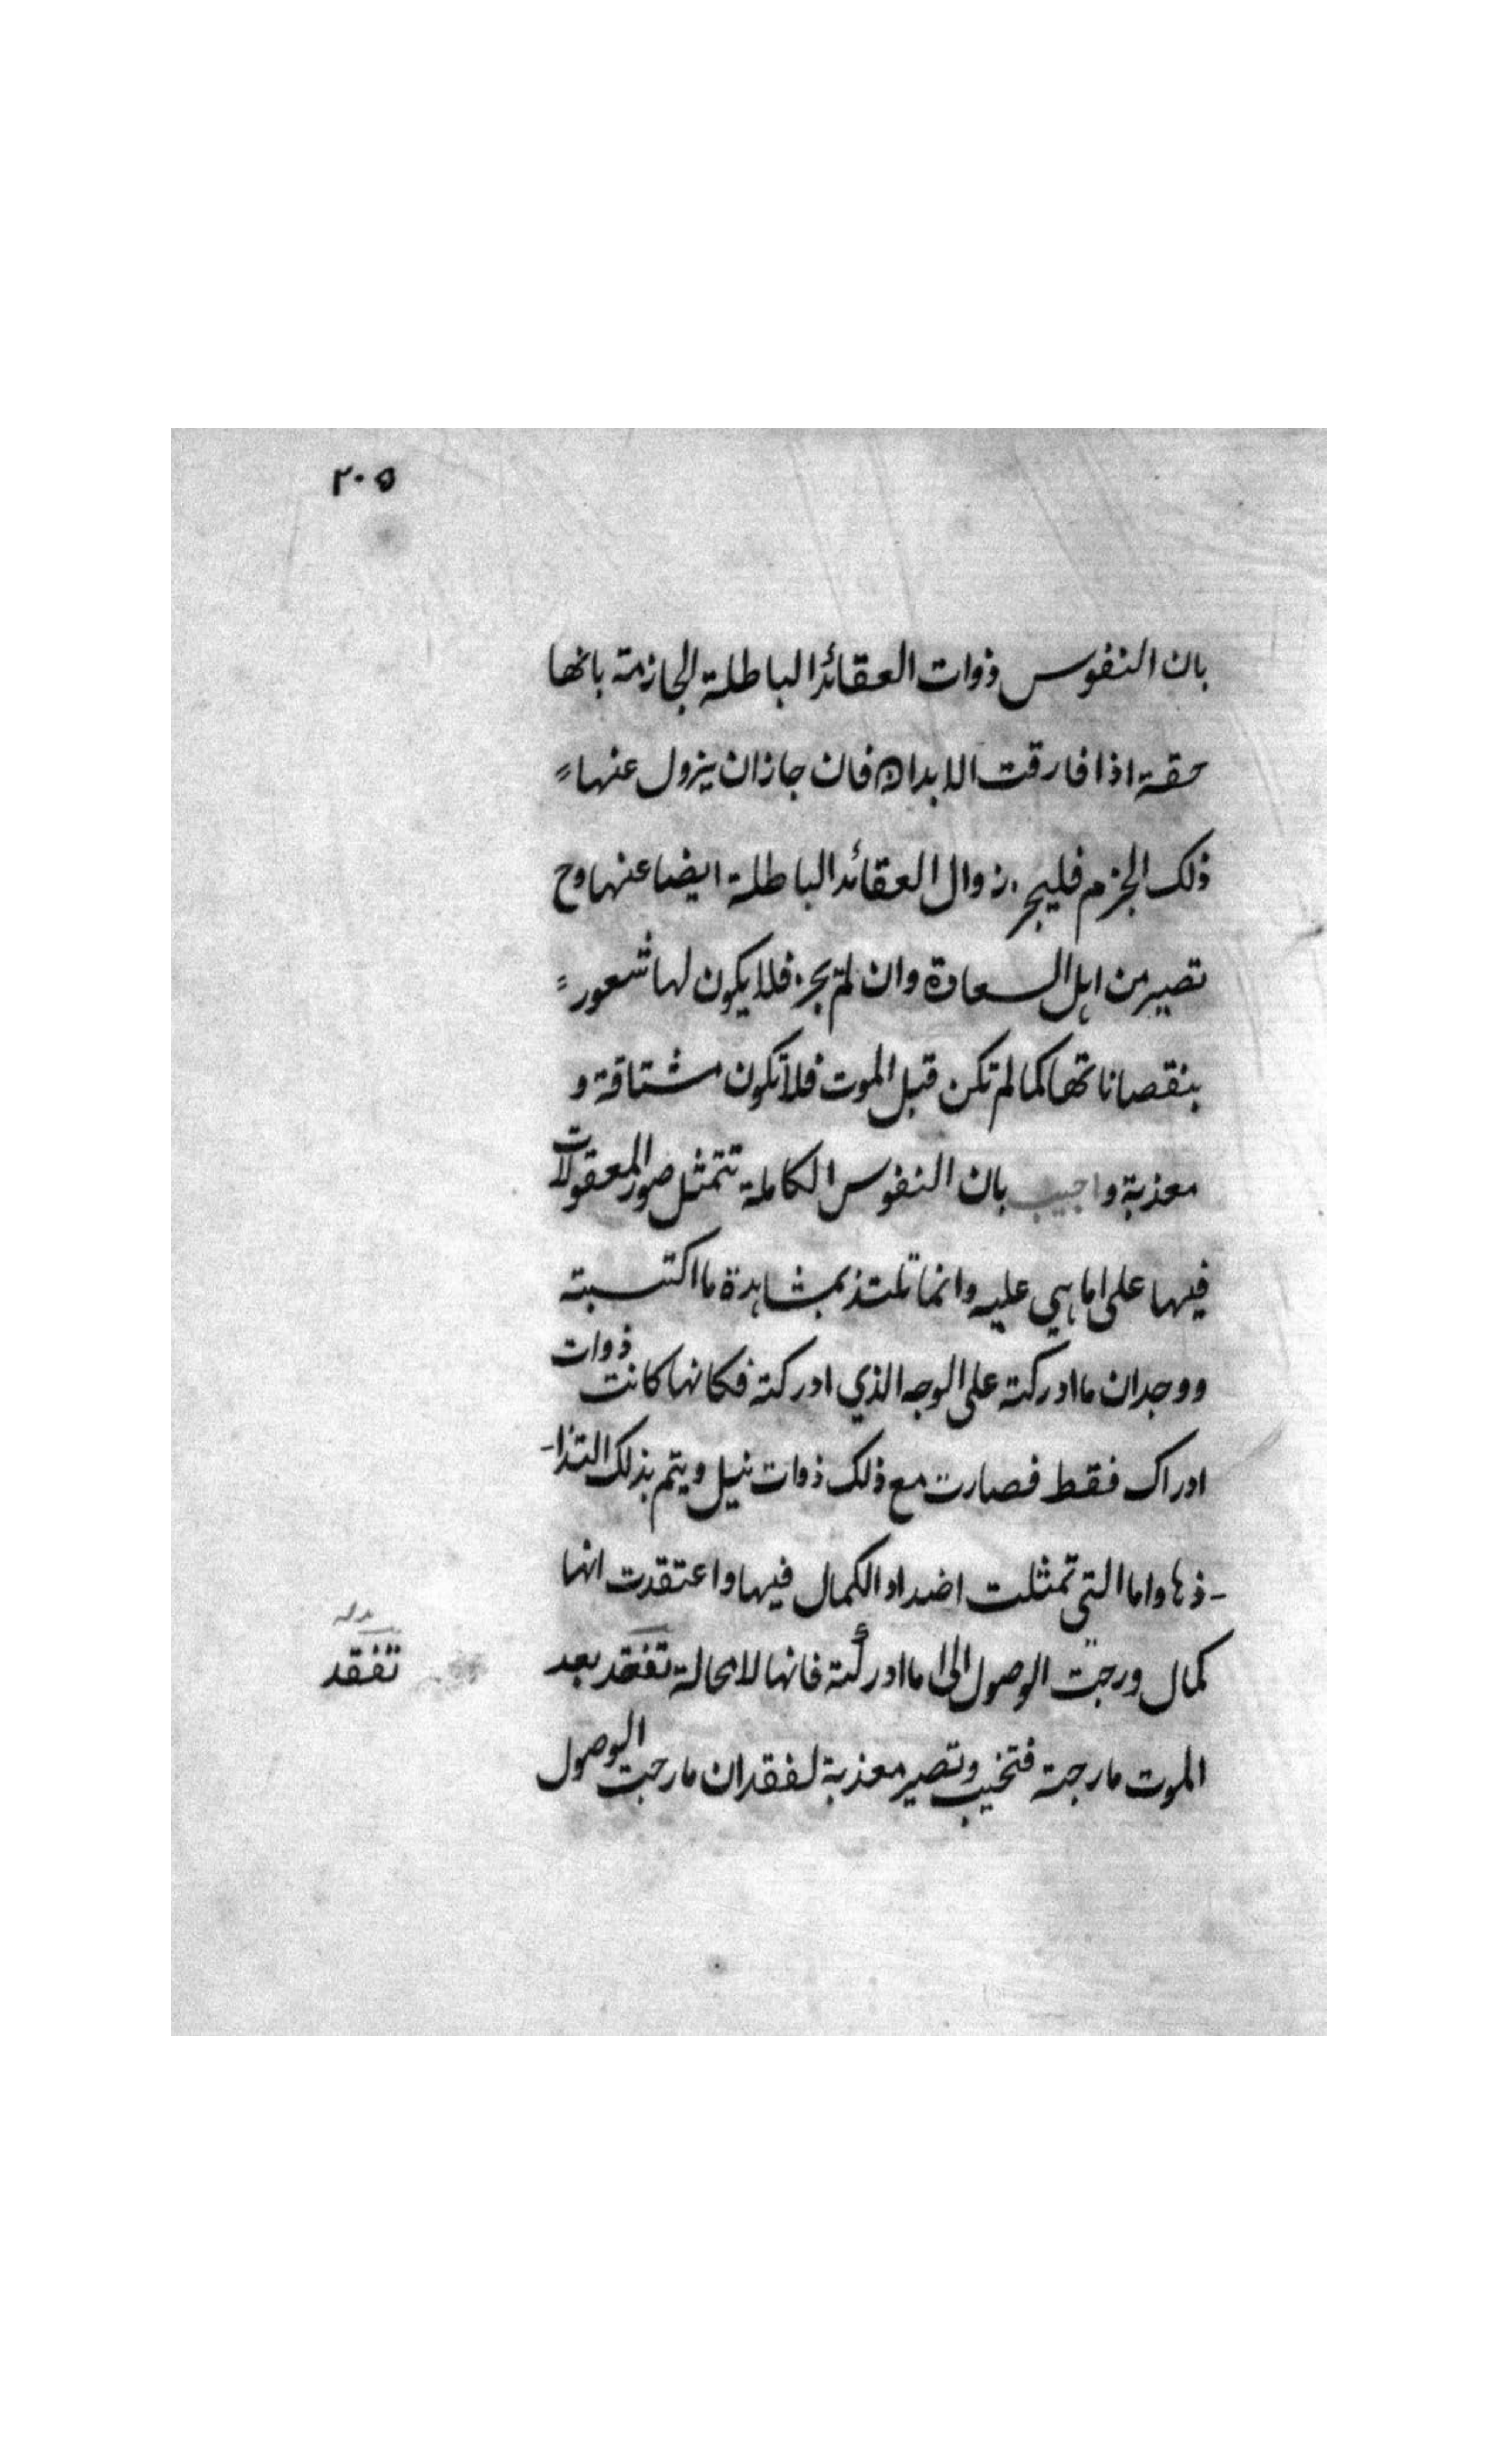 ٢٠٥
بان النفوس ذوات العقائد الباطلة الجازمة بانها
حقة اذا فارقت الابدان فان جاز ان يزول عنها
ذلك الجزم فليجز زوال العقائد الباطلة ايضا عنها وح
تصير من اهل السعادة وان لم يجز فلا يكون لها شعور
بنقصاناتها كما لم تكن قبل الموت فلا تكون مشتاقة و
معذبة واجيب بان النفوس الكاملة تتمثل صور المعقولات
فيها على ما هي عليه وانما تلتذ بمشاهدة ما اكتسبته
ووجدان ما ادركته على الوجه الذي ادركته فكانها كانت ذوات
ادراك فقط فصارت مع ذلك ذوات نيل ويتم بذلك التذا-
-ذها واما التي تمثلت اضداد الكمال فيها واعتقدت انها
كمال ورجت الوصول الى ما ادركته فانها لا محالة تفقد بعد
تفقد
الموت ما رجته فتخيب وتصير معذبة لفقدان ما رجت الوصول